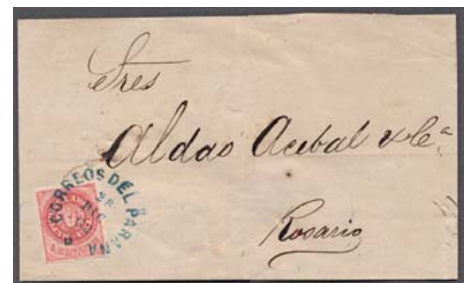 Sres
Aldao Acebal y Cª
Rosario
CORREOS DEL PARANA
28
DIC